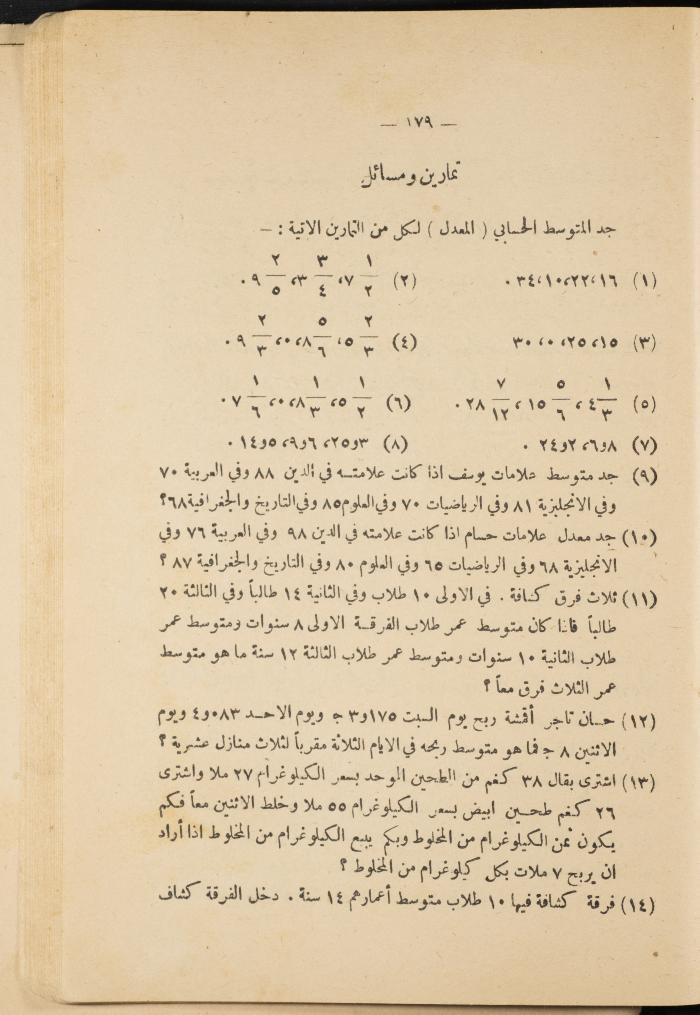 — ١٧٩ —
تمارين ومسائل
جد المتوسط الحسابي ( المعدل ) لكل من التمارين الاتية : —
(١) ١٦،٢٢،١٠،٣٤ . (٢) ٧ ١/٢ ، ٣ ٣/٤ ، ٩ ٢/٥ .
(٣) ١٥، ٢٥، ٠، ٣٠ . (٤) ٥ ٢/٣ ، ٨ ٥/٦ ، ٠، ٩ ٢/٣ .
(٥) ٤ ١/٣ ، ١٥ ٥/٦ ، ٢٨ ٧/١٢ . (٦) ٥ ١/٢ ، ٨ ١/٣ ، ٠، ٧ ١/٦ .
(٧) ٨و٦، ٢و٢٤ . (٨) ٣و٢٥، ٦و٩، ٥و١٤ .
(٩) جد متوسط علامات يوسف اذا كانت علامتـه في الدين ٨٨ وفي العربية ٧٠
وفي الانجليزية ٨١ وفي الرياضيات ٧٠ وفي العلوم ٨٥ وفي التاريخ والجغرافية ٦٨؟
(١٠) جد معدل علامات حسام اذا كانت علامته في الدين ٩٨ وفي العربية ٧٦ وفي
الانجليزية ٦٨ وفي الرياضيات ٦٥ وفي العلوم ٨٠ وفي التاريخ والجغرافية ٨٧ ؟
(١١) ثلاث فرق كشافة . في الاولى ١٠ طلاب وفي الثانية ١٤ طالباً وفي الثالثة ٢٠
طالباً فاذا كان متوسط عمر طلاب الفرقـة الاولى ٨ سنوات ومتوسط عمر
طلاب الثانية ١٠ سنوات ومتوسط عمر طلاب الثالثة ١٢ سنة ما هو متوسط
عمر الثلاث فرق معاً ؟
(١٢) حسان تاجر أقمشة ربح يوم السبت ١٧٥و٣ ج ويوم الاحـد ٠٨٣و٤ ويوم
الاثنين ٨ ج فما هو متوسط ربحه في الايام الثلاثة مقرباً لثلاث منازل عشرية ؟
(١٣) اشترى بقال ٣٨ كغم من الطحين الموحد بسعر الكيلوغرام ٢٧ ملا واشترى
٢٦ كغم طحـين ابيض بسعر الكيلوغرام ٥٥ ملا وخلط الاثنين معاً فـكم
يـكون ثمن الكيلوغرام من المخلوط وبكم يبيع الكيلوغرام من المخلوط اذا أراد
ان يربح ٧ ملات بكل كيلوغرام من المخلوط ؟
(١٤) فرقة كشافة فيها ١٠ طلاب متوسط أعمارهم ١٤ سنة . دخل الفرقة كشاف